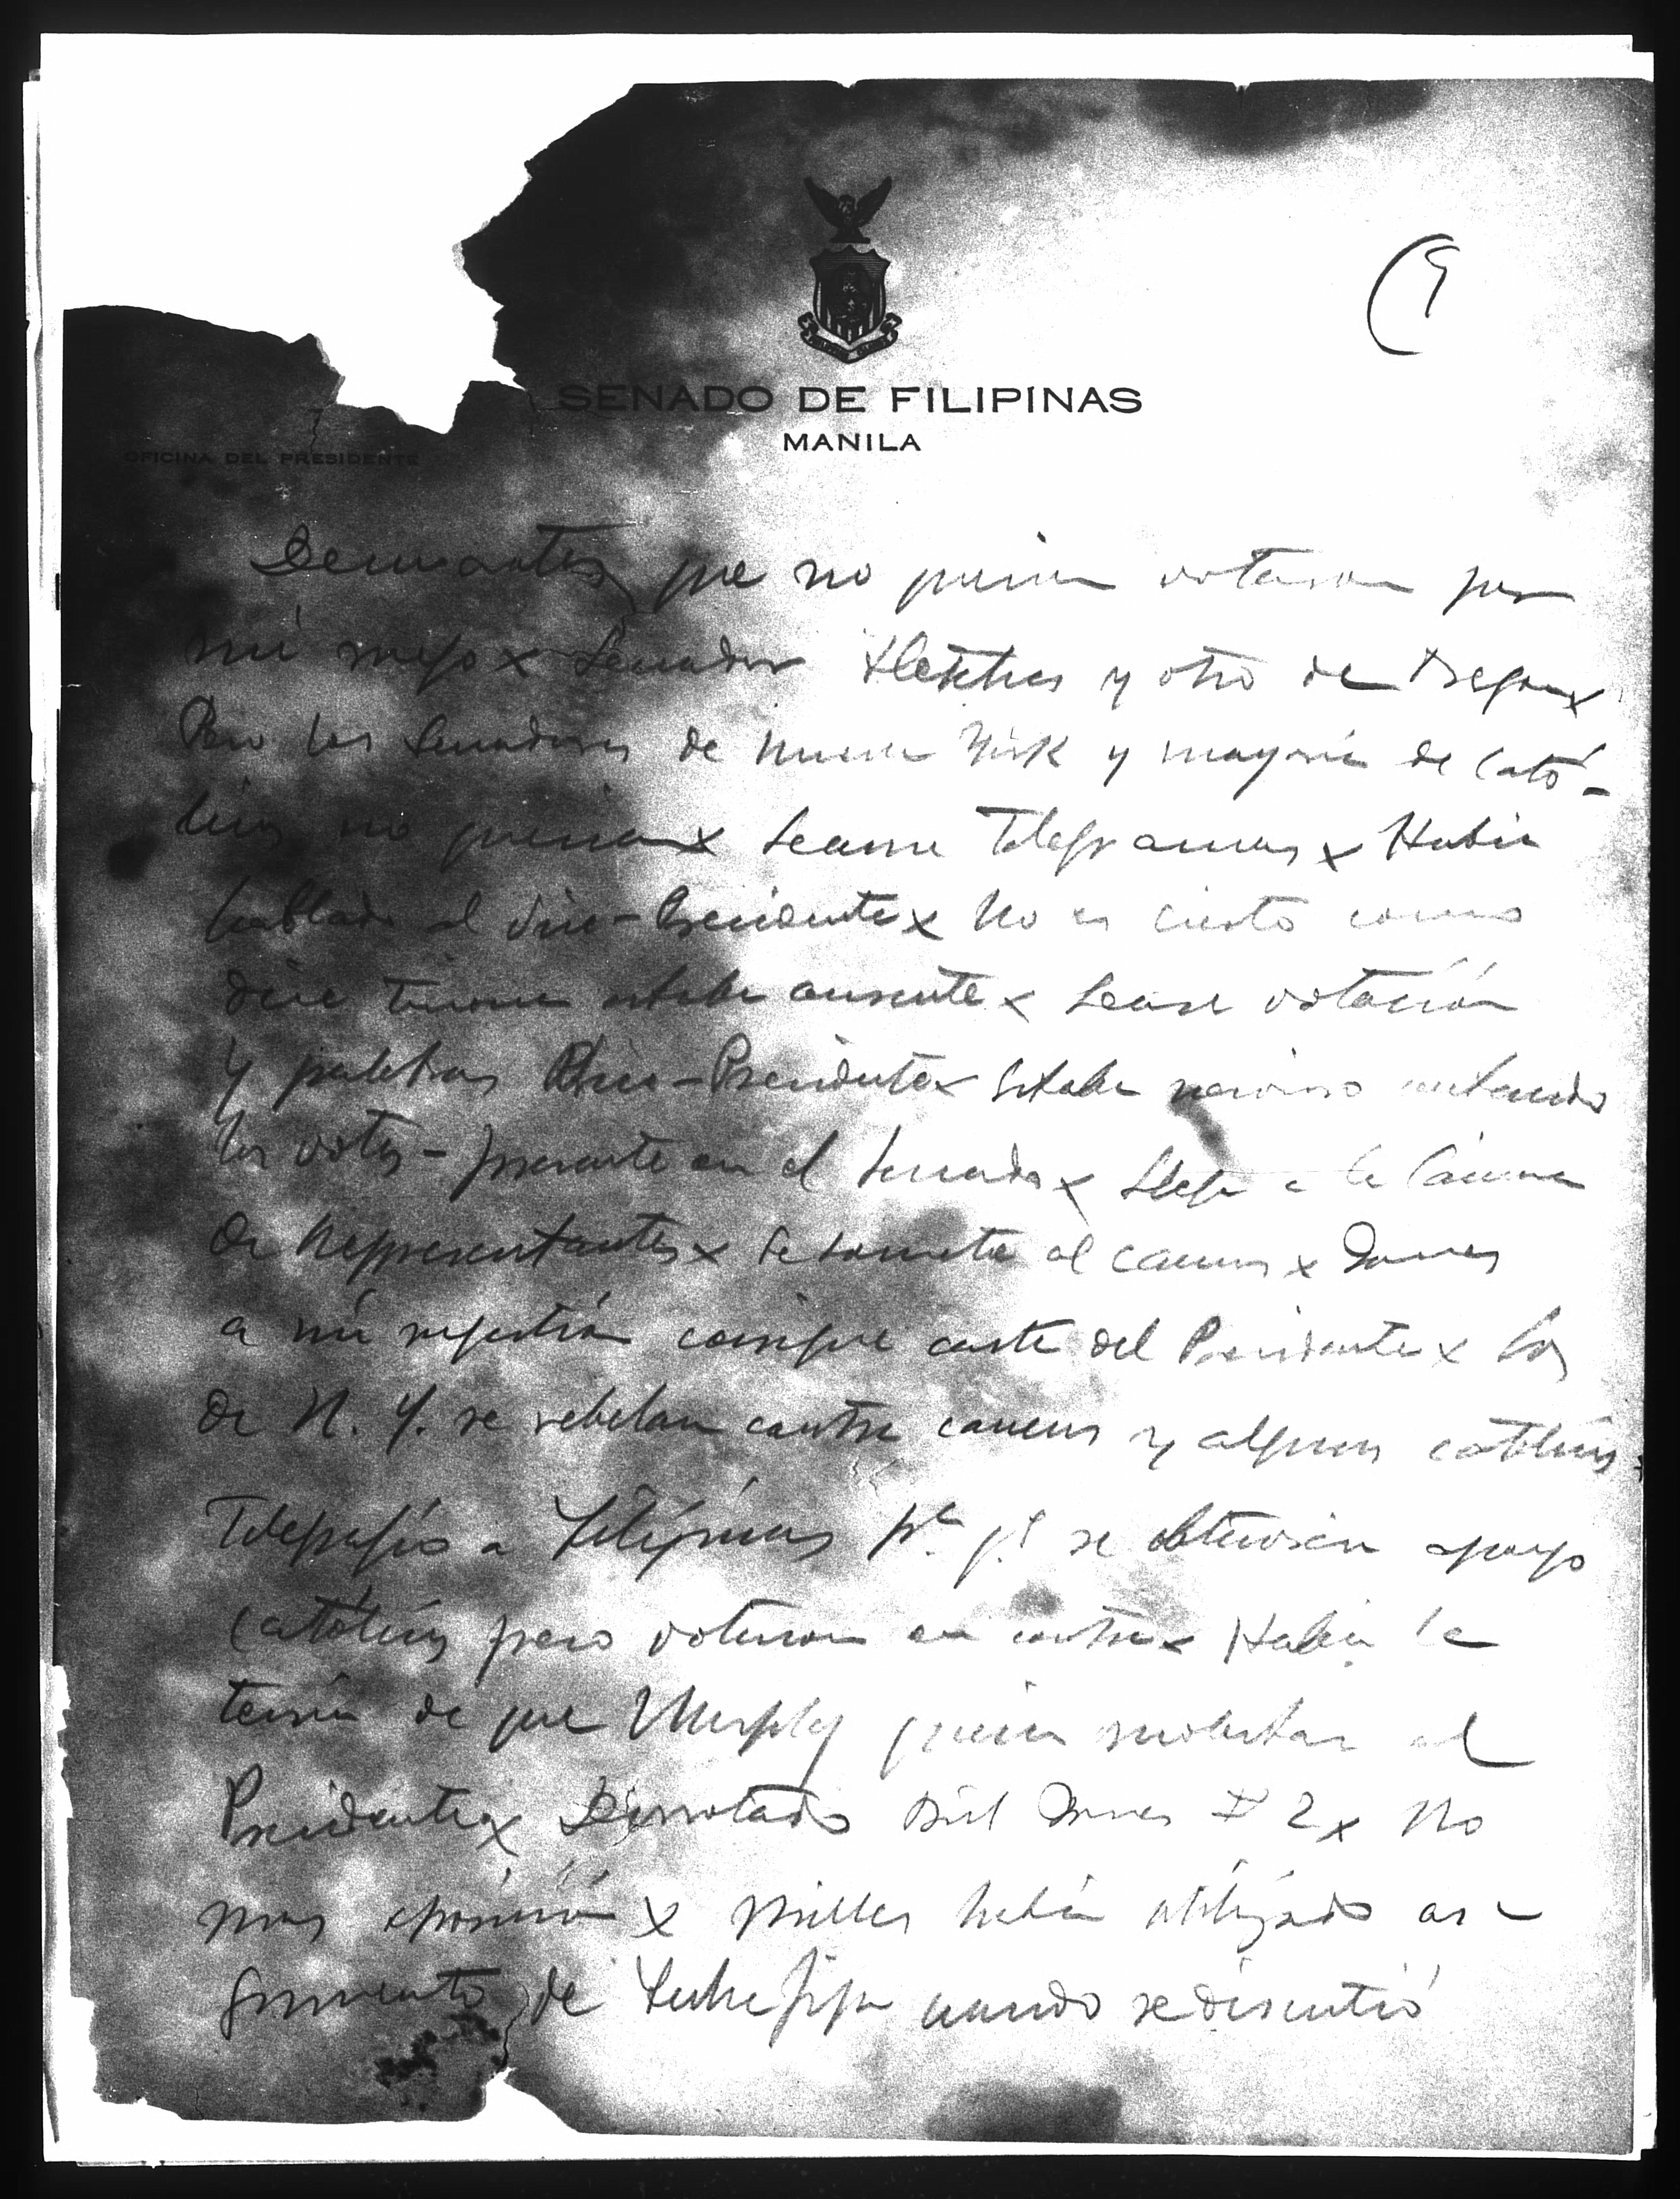 (9
SENADO DE FILIPINAS
MANILA
OFICINA DEL PRESIDENTE
que no querian votaron por
mi ruego x Senador Fletcher y otro de Oregon x
Pero los Senadores de Nueva York y mayoria de Cató-
licos no querian x Lease Telegramas x Habia
hablado al Vice-Presidente x No es cierto como
dice estaba ausente x Lease votación
y palabras Vice-Presidente x Estaba nervioso contando
los votos - presente en el Senado x Llega a la Cámara
de Representantes x Se somete al caucus x Jones
a mi sugestión consigue carta del Presidente x Los
de N. Y. se rebelan contra caucus y algunos católicos
Telegrafío a Filipinas pa. q. se obtuviera apoyo
católicos pero votaron en contra x Habia la
teoría de que Murphy queria molestar al
Presidente x Derrotado Bill Jones # 2 x No
mas oposición x Miller habia utilizado ar-
gumento de cuando se discutió